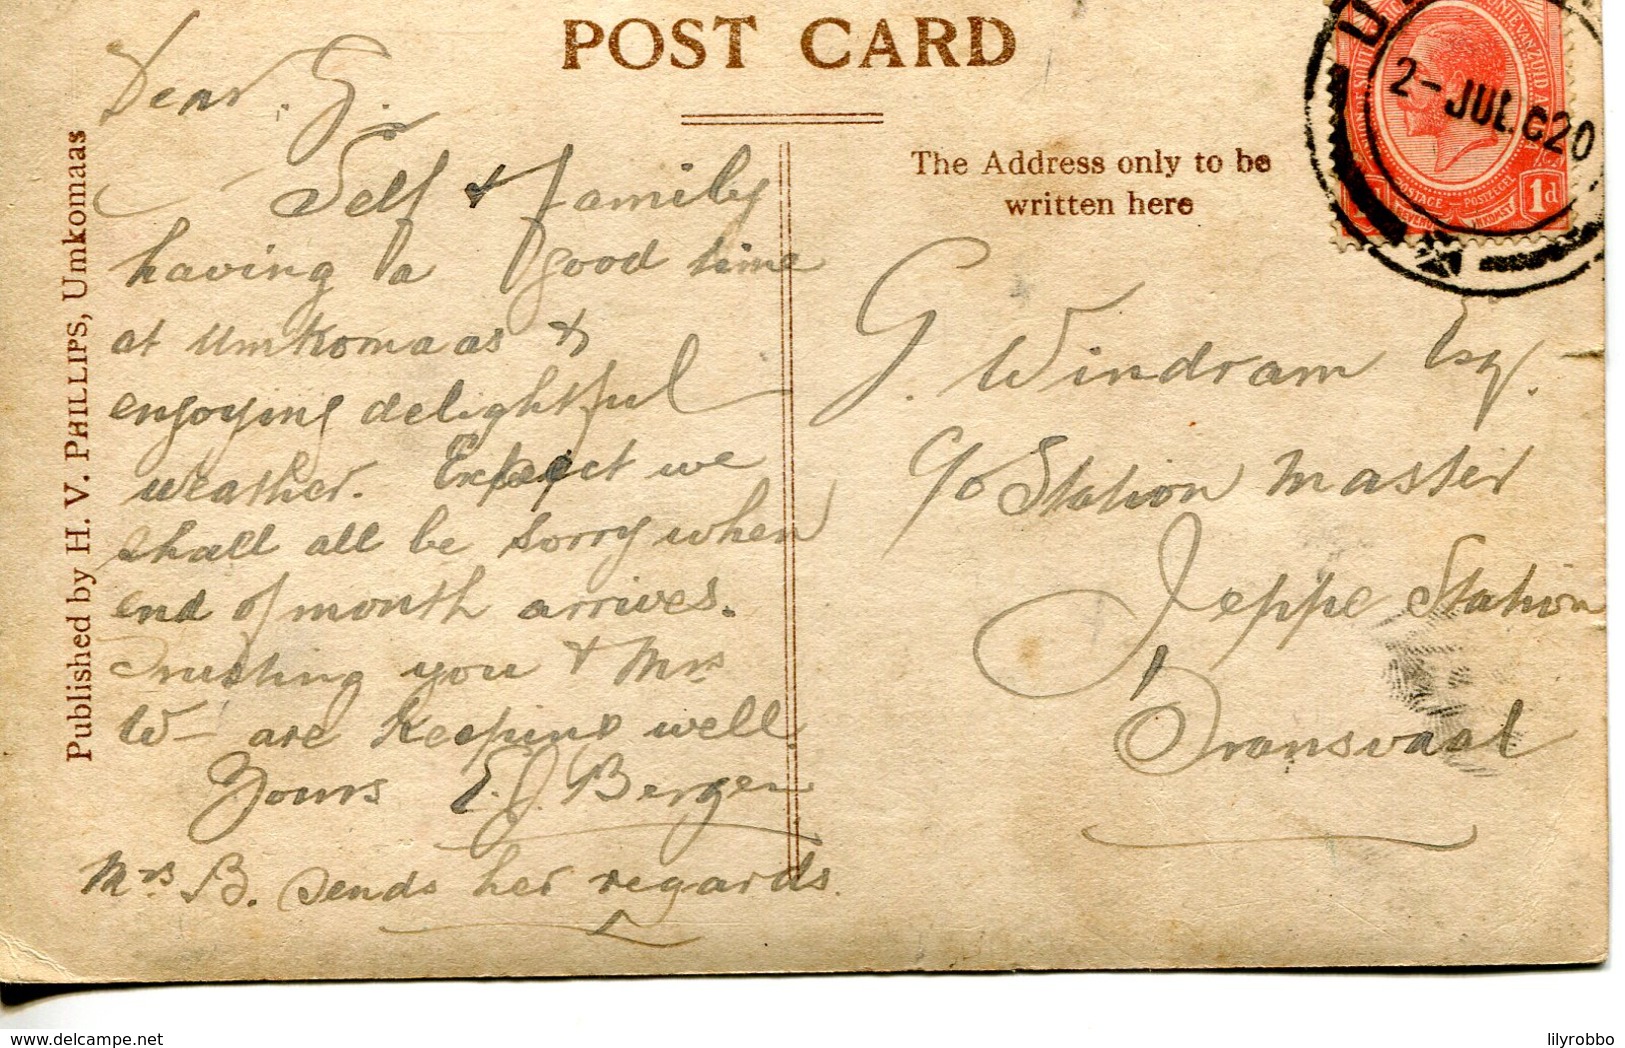 POST CARD
The Address only to be
written here
Published by H. V. PHILLIPS, Umkomaas
Dear G.
Self & family
having a good time
at Umkomaas &
enjoying delightful
weather. Expect we
shall all be sorry when
end of month arrives.
Trusting you & Mrs
W— are keeping well.
Yours E. J. Bergen
Mrs B. sends her regards.
G. Windram Esq.
c/o Station Master
Jeppe Station
Transvaal
2-JUL.C20
POSTAGE POSTZEGEL
REVENUE INKOMST
1d
lilyrobbo